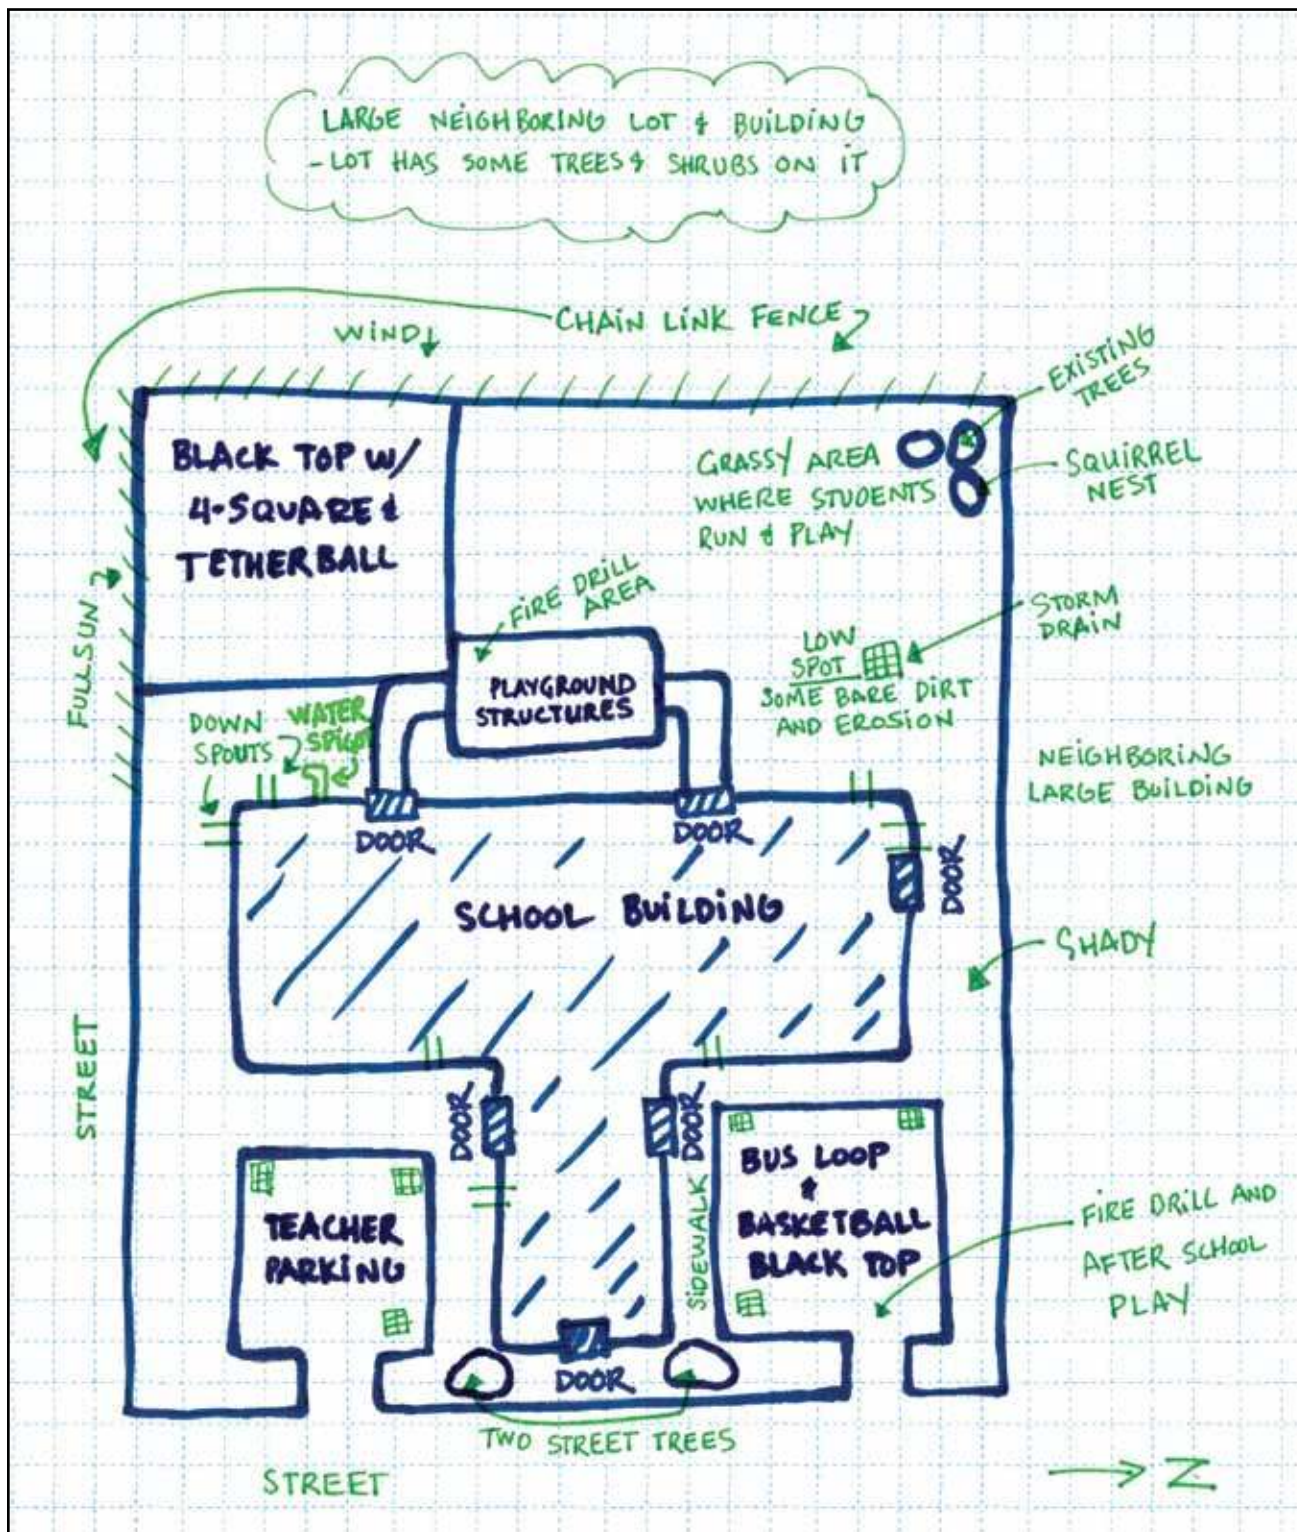 LARGE NEIGHBORING LOT & BUILDING
- LOT HAS SOME TREES & SHRUBS ON IT
CHAIN LINK FENCE
WIND
EXISTING
TREES
BLACK TOP W/
4-SQUARE &
TETHERBALL
GRASSY AREA
WHERE STUDENTS
RUN & PLAY
SQUIRREL
NEST
FULL SUN
FIRE DRILL
AREA
STORM
DRAIN
LOW
SPOT
SOME BARE DIRT
AND EROSION
PLAYGROUND
STRUCTURES
DOWN
SPOUTS
WATER
SPIGOT
NEIGHBORING
LARGE BUILDING
DOOR
DOOR
DOOR
SCHOOL BUILDING
SHADY
STREET
DOOR
DOOR
TEACHER
PARKING
SIDEWALK
BUS LOOP
&
BASKETBALL
BLACK TOP
FIRE DRILL AND
AFTER SCHOOL
PLAY
DOOR
TWO STREET TREES
STREET
Z